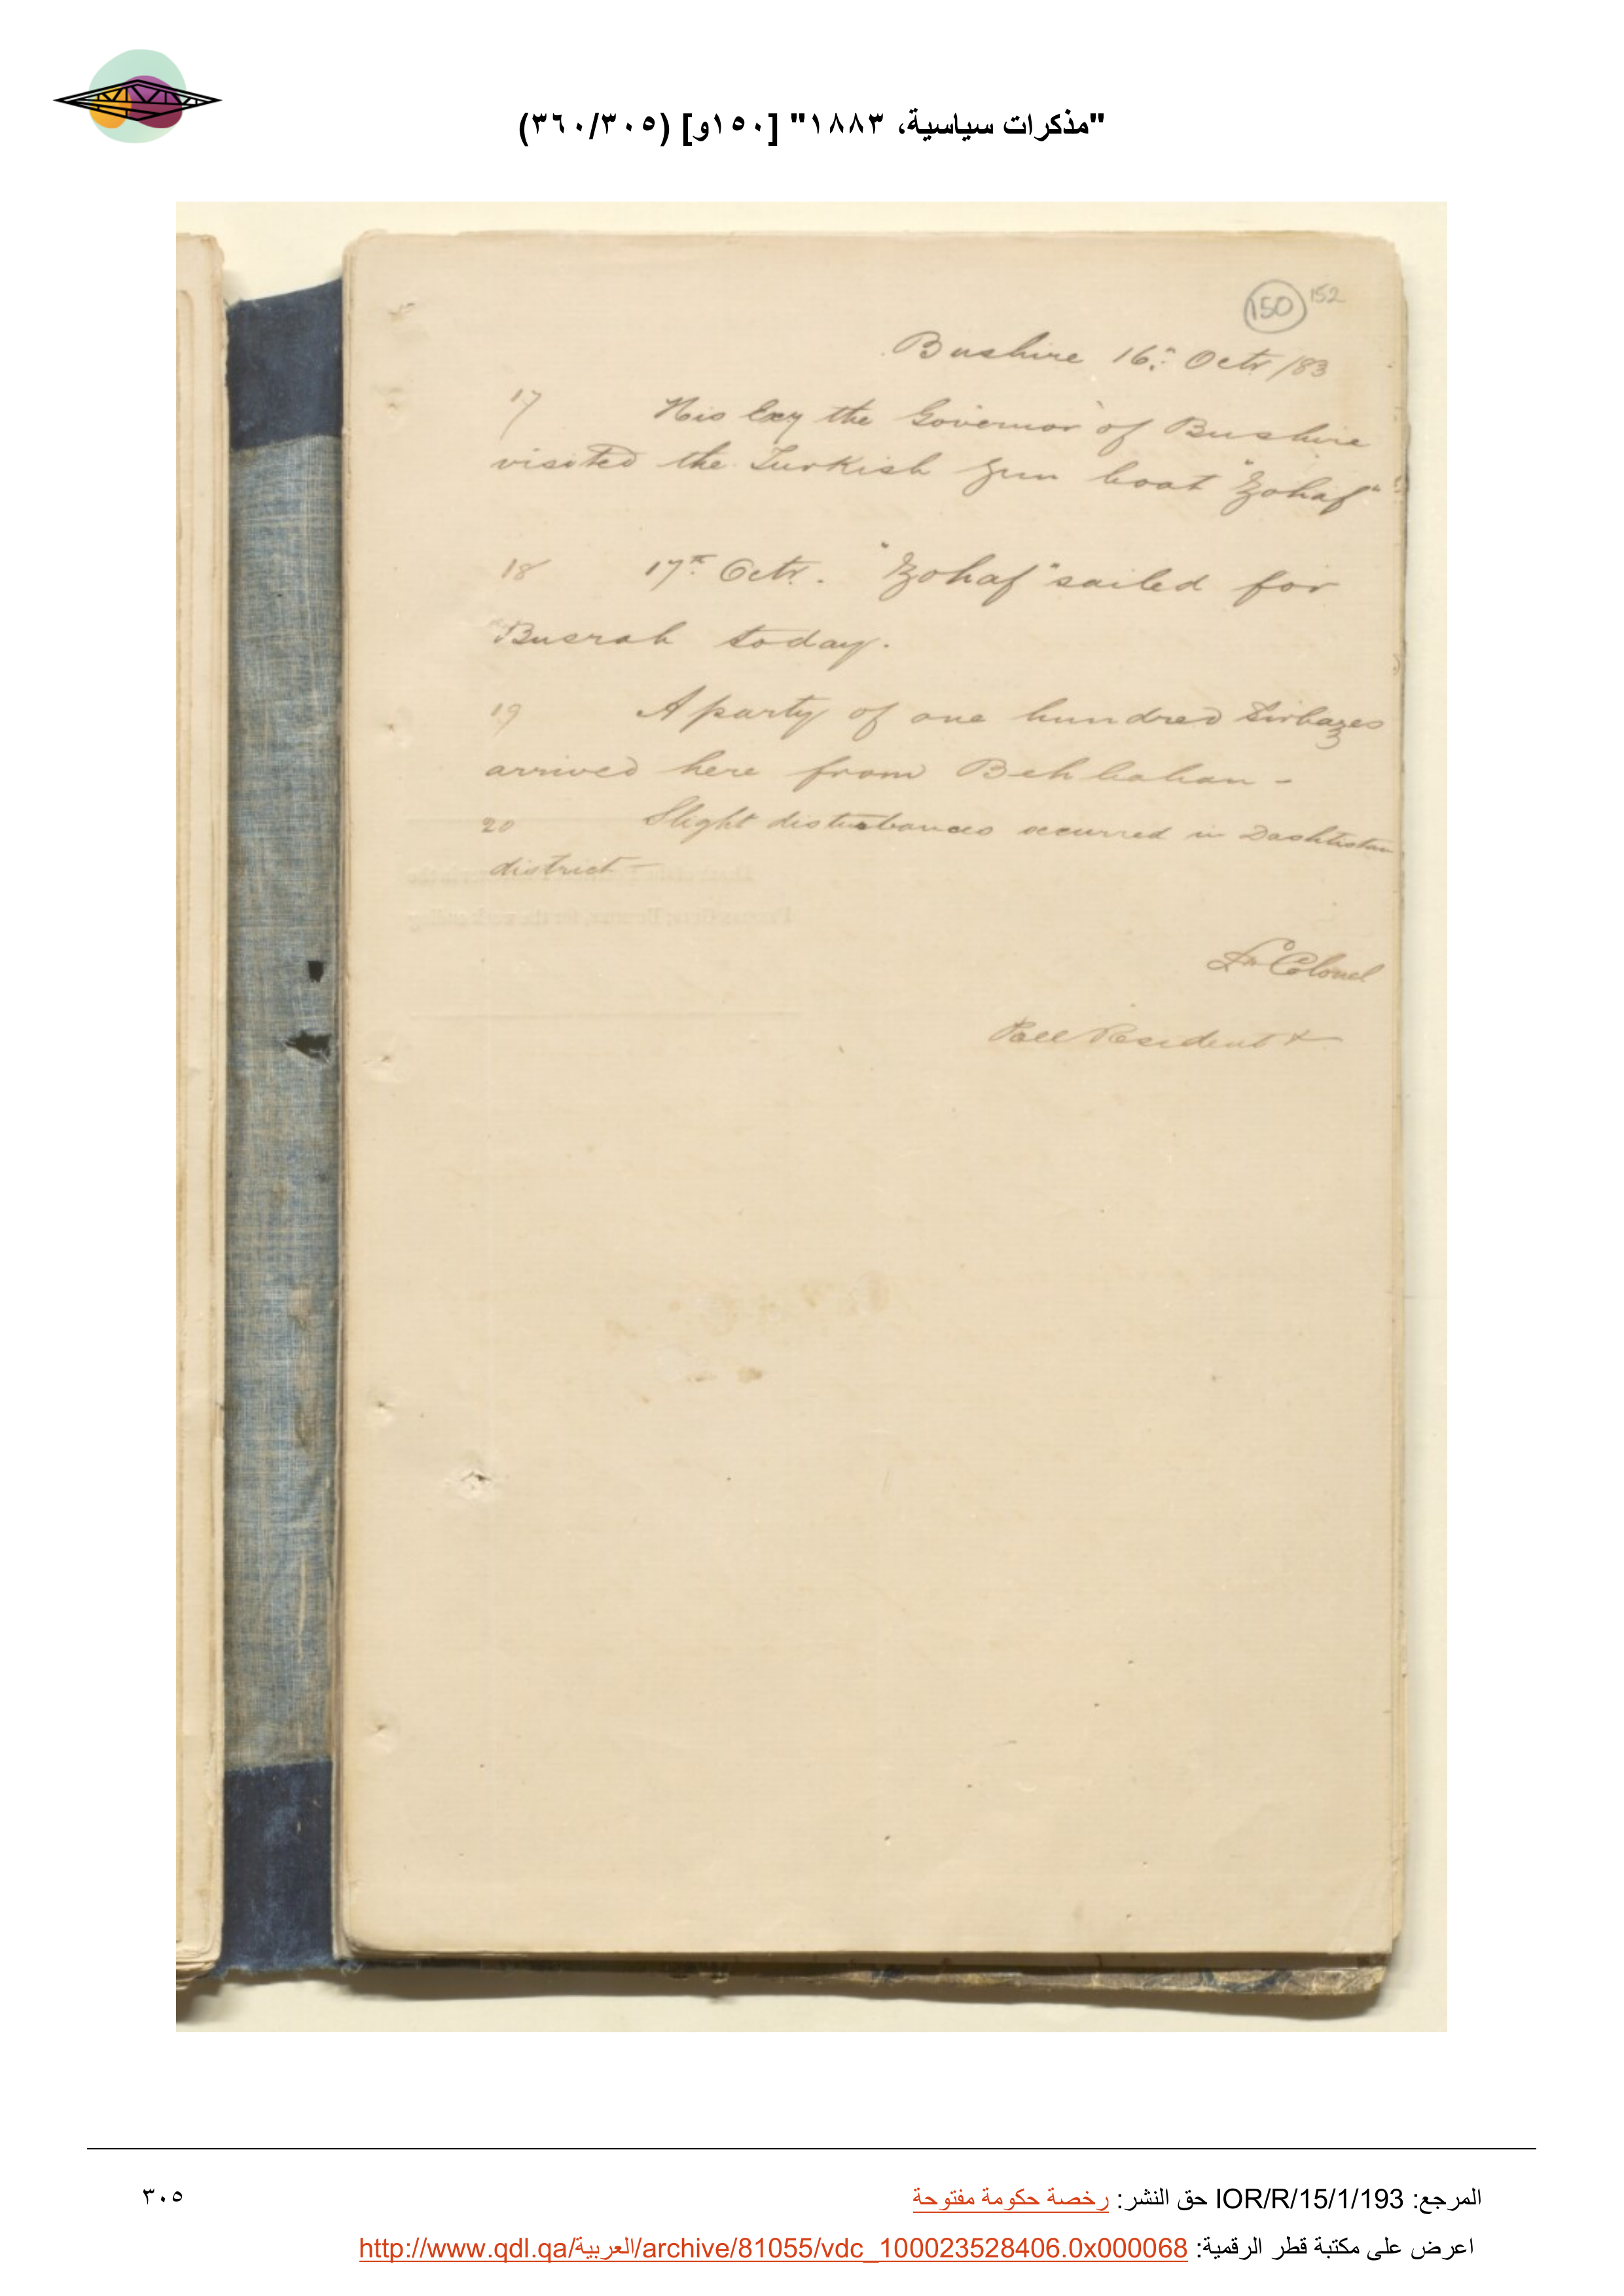 "مذكرات سياسية، ١٨٨٣" [١٥٠و] (٣٦٠/٣٠٥)
150 152
Bushire 16th Octr /83
17 His Excy the Governor of Bushire
visited the Turkish gun boat "Zohaf"
18 17th Octr. "Zohaf" sailed for
Busrah today.
19 A party of one hundred Sirbazes
arrived here from Behbahan -
20 Slight disturbances occurred in Dashtistan
district -
Lt Colonel
Poll Resident
المرجع: IOR/R/15/1/193 حق النشر: رخصة حكومة مفتوحة
٣٠٥
اعرض على مكتبة قطر الرقمية: http://www.qdl.qa/العربية/archive/81055/vdc_100023528406.0x000068